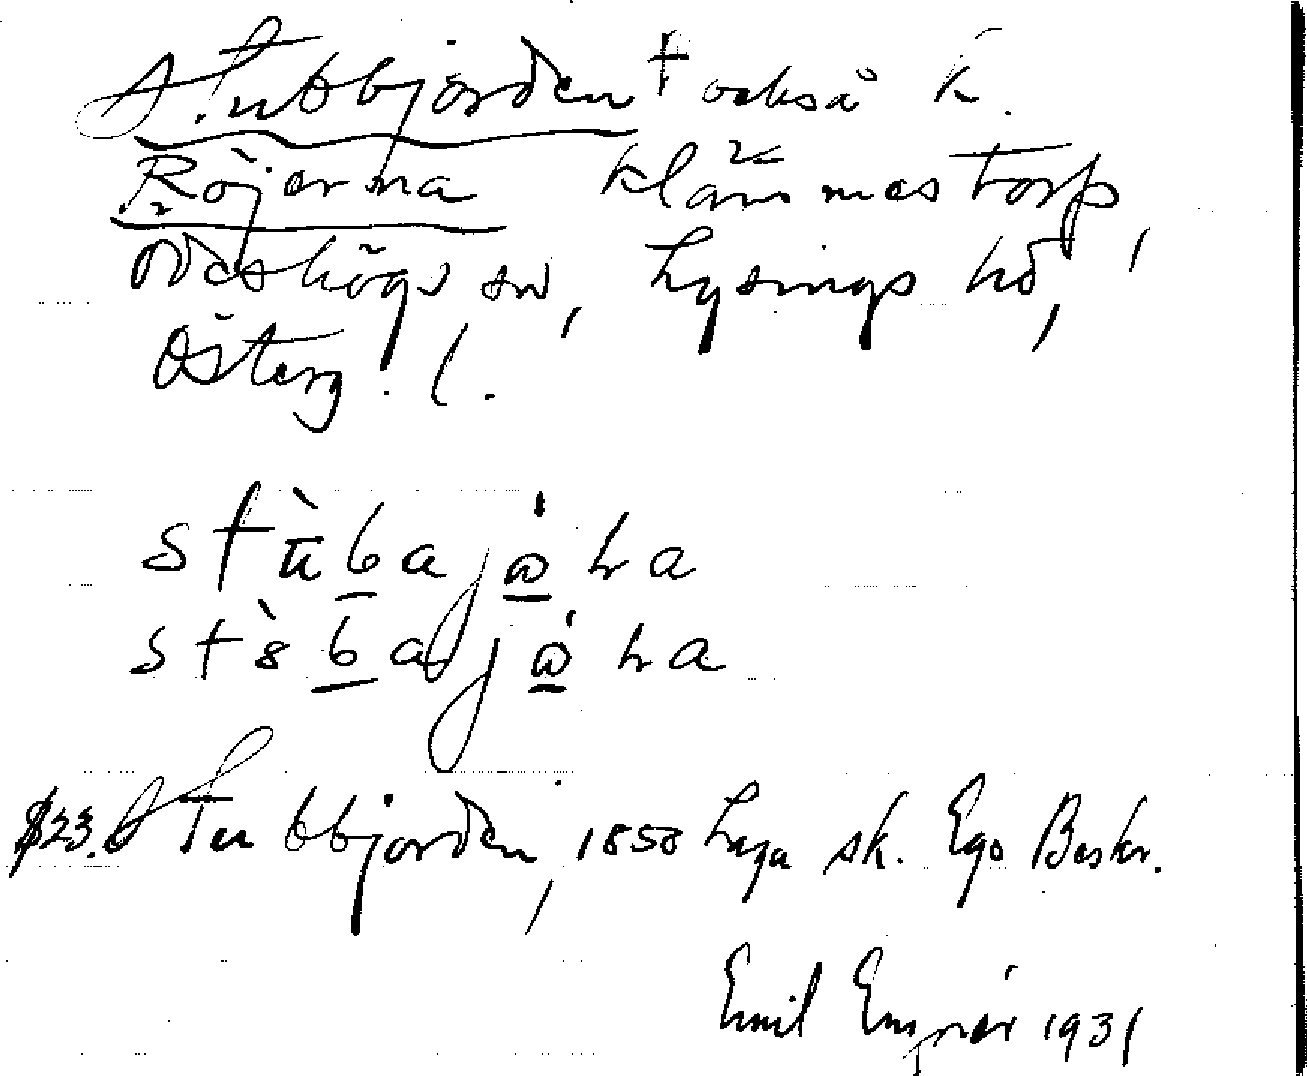 Stubbjorden † också k.
Röjerna Klämmestorp,
Ödeshögs sn, Lysings hd,
Österg. l.
stu̠̇bajo̠ra
stàbajo̠ra
§23. Stubbjorden, 1858 Laga sk. Ego Beskr.
Emil 1931